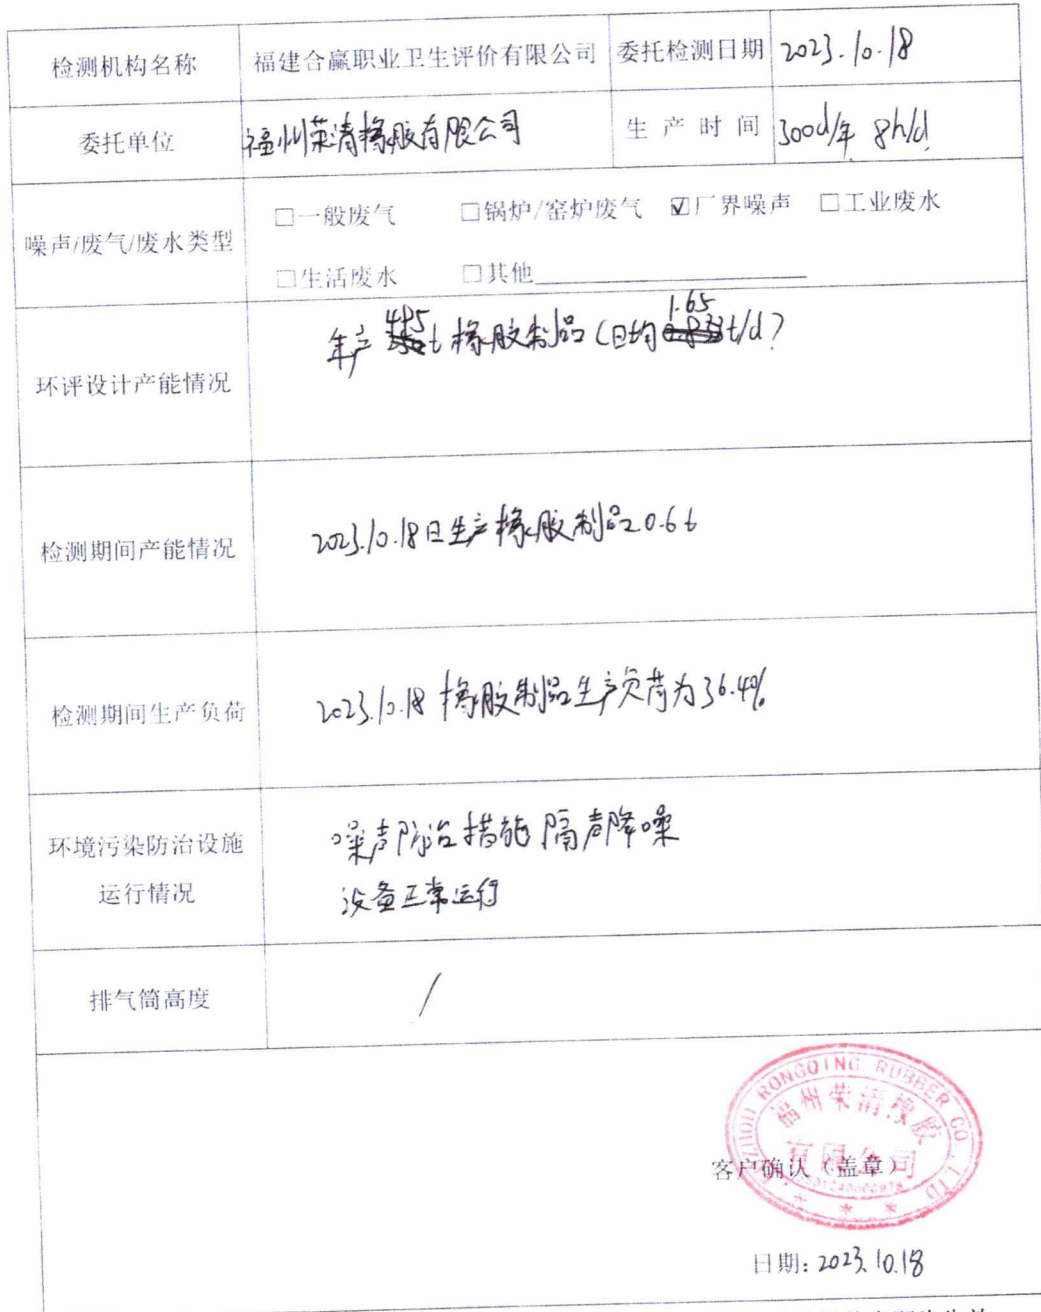 检测机构名称 福建合赢职业卫生评价有限公司 委托检测日期 2023.10.18
委托单位 福州荣清橡胶有限公司 生产时间 300d/年 8h/d
噪声/废气/废水类型 □一般废气 □锅炉/窑炉废气 ☑厂界噪声 □工业废水
□生活废水 □其他
环评设计产能情况 年产495t橡胶制品(日均1.65t/d)
检测期间产能情况 2023.10.18日生产橡胶制品0.6t
检测期间生产负荷 2023.10.18橡胶制品生产负荷为36.4%
环境污染防治设施 噪声防治措施隔声降噪
运行情况 设备正常运行
排气筒高度 /
FUZHOU RONGQING RUBBER CO.,LTD
福州荣清橡胶
有限公司
客户确认（盖章）
日期: 2023.10.18